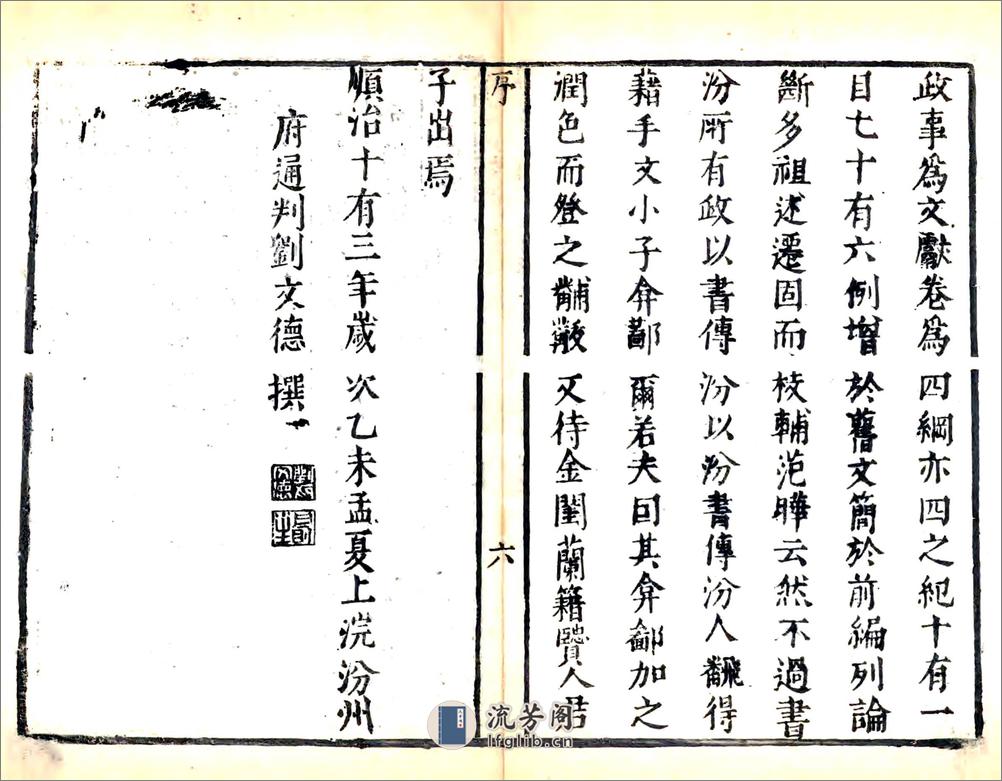 政事為文獻卷為四綱亦四之紀十有一
目七十有六例增於舊文簡於前編列論
斷多祖述遷固而枝輔范曄云然不過書
汾所有政以書傳汾以汾書傳汾人翻得
藉手文小子弇鄙爾若夫回其弇鄙加之
潤色而登之黼黻又待金閨蘭籍賢人君
序
六
子出焉
順治十有三年歲次乙未孟夏上浣汾州
府通判劉文德撰
流芳阁
lfglib.cn